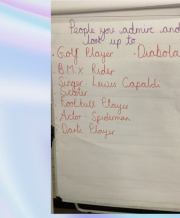 People you admire and
look up to
· Golf Player · Diabola
B.M.X Rider
Singer · Lewis Capaldi
Scooter
Football Player
Actor · Spiderman
Darts Player